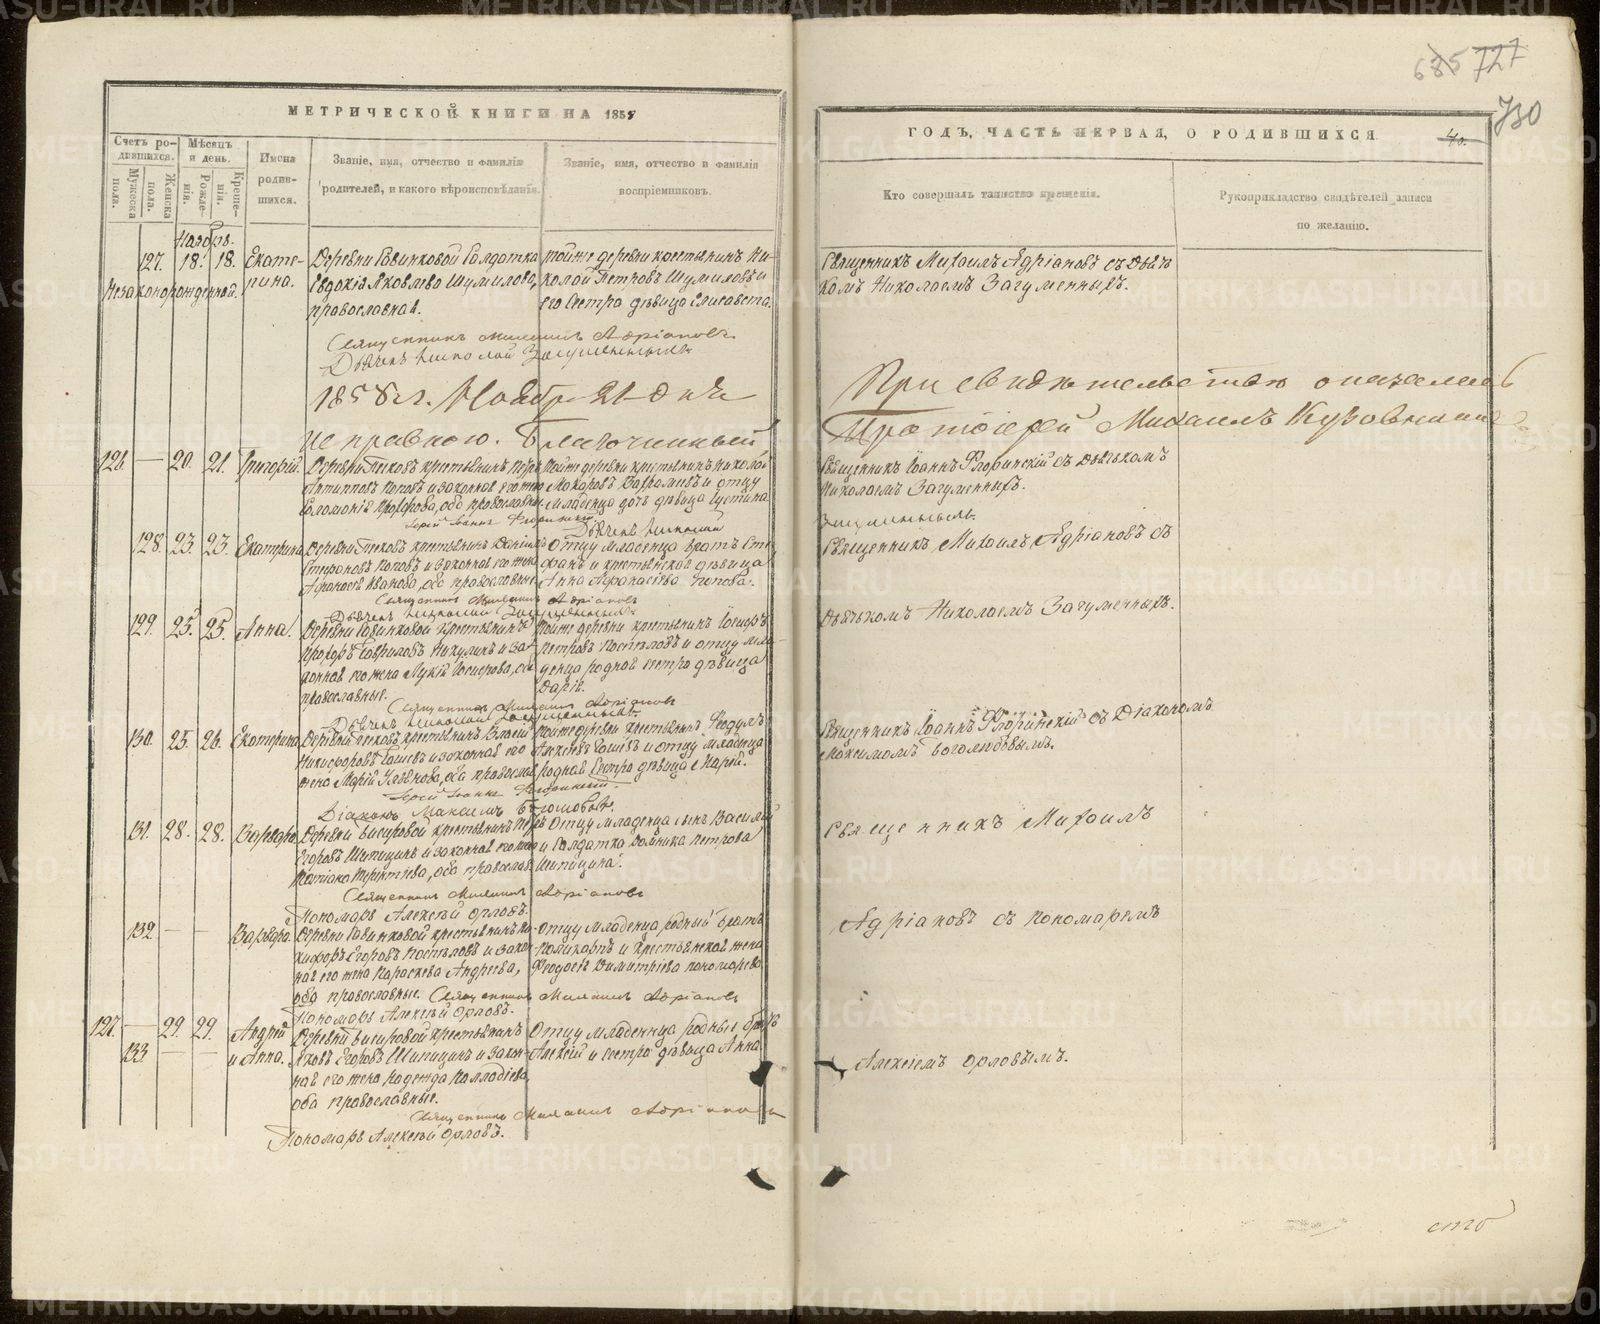 685 727
730
МЕТРИЧЕСКОЙ КНИГИ НА 1858
ГОДЪ, ЧАСТЬ ПЕРВАЯ, О РОДИВШИХСЯ
40.
Счетъ родившихся.
Мужеска пола.
Женска пола.
Мѣсяцъ и день.
Рожденія.
Крещенія.
Имена родившихся.
Званіе, имя, отчество и фамилія
родителей, и какого вѣроисповѣданія.
Званіе, имя, отчество и фамилія
воспріемниковъ.
Кто совершалъ таинство крещенія.
Рукоприкладство свидѣтелей записи
по желанію.
Ноябрь.
127. 18. 18. Екатерина.
Незаконорожденной.
Деревни Савинковой Солдатка
Евдокія Яковлева Шумилова,
православная.
тойже деревни крестьянинъ Николай Петровъ Шумиловъ и
его Сестра дѣвица Елисавета.
Священникъ Михаилъ Адріановъ съ Дьячкомъ Николаемъ Загуменныхъ.
Священникъ Михаилъ Адріановъ
Дьячекъ Николай Загуменныхъ
1858 г. Ноябр 21 дня
При свидѣтельствѣ оказалась
исправною. Благочинный
Протоіерей Михаилъ
126 — 20. 21. Григорій.
крестьянинъ
Антиповъ Поповъ и законная его жена
Соломонія, оба православны
Тойже деревни крестьянинъ Николай
Макаровъ и отцу
младенца дочь дѣвица Устина
Священникъ Іоаннъ Флоринскій съ Дьячкомъ
Николаемъ Загуменныхъ.
Іерей Іоаннъ Флоринскій
Дьячекъ Николай
Загуменныхъ.
128. 23. 23. Екатерина.
крестьянинъ Даніилъ
Стефановъ Поповъ и законная его жена
Афанасія Иванова, оба православные.
Отцу младенца братъ Стефанъ и крестьянская дѣвица
Анна Афанасіева Попова.
Священникъ Михаилъ Адріановъ съ
Священникъ Михаилъ Адріановъ
Дьячекъ Николай Загуменныхъ.
129. 25. 25. Анна.
Деревни Савинковой крестьянинъ
Прохоръ Гавриловъ Никулинъ и законная его жена
православные.
Тойже деревни крестьянинъ Іосифъ
Петровъ Поспѣловъ и отцу младенца родная сестра дѣвица
Дарія.
Дьячкомъ Николаемъ Загуменныхъ.
Священникъ Михаилъ Адріановъ
Дьячекъ Николай Загуменныхъ.
130. 25. 26. Екатерина.
крестьянинъ Власій
Никифоровъ и законная его
жена Марія Ульянова, оба православ
Тойже деревни крестьянинъ Феодулъ
и отцу младенца
родная Сестра дѣвица Марія.
Священникъ Іоаннъ Флоринскій съ Діакономъ
Максимомъ Боголюбовымъ.
Іерей Іоаннъ Флоринскій.
Діаконъ Максимъ Боголюбовъ.
131. 28. 28. Варвара.
крестьянинъ Петръ
Егоровъ Шипицинъ и законная его жена
оба православ
Отцу младенца сынъ Василій
и Солдатка Домника Петрова
Шипицина.
Священникъ Михаилъ
Священникъ Михаилъ Адріановъ
Пономарь Алексѣй Орловъ.
132. — — Варвара.
Деревни Савинковой крестьянинъ Никифоръ Егоровъ Поспѣловъ и законная его жена Параскева Андреева,
оба православные.
Отцу младенца родный братъ
Поликарпъ и крестьянская жена
Феодосія Димитріева Пономарева
Адріановъ съ пономаремъ
Священникъ Михаилъ Адріановъ
Пономарь Алексѣй Орловъ.
127. — 29. 29. Андрей
133 — — и Анна.
крестьянинъ
Яковъ Егоровъ Шипицинъ и законная его жена Надежда Палладіева,
оба православные.
Отцу младенца родные братъ
Алексій и сестра дѣвица Анна.
Алексіемъ Орловымъ.
Священникъ Михаилъ Адріановъ
Пономарь Алексѣй Орловъ.
METRIKI.GASO-URAL.RU